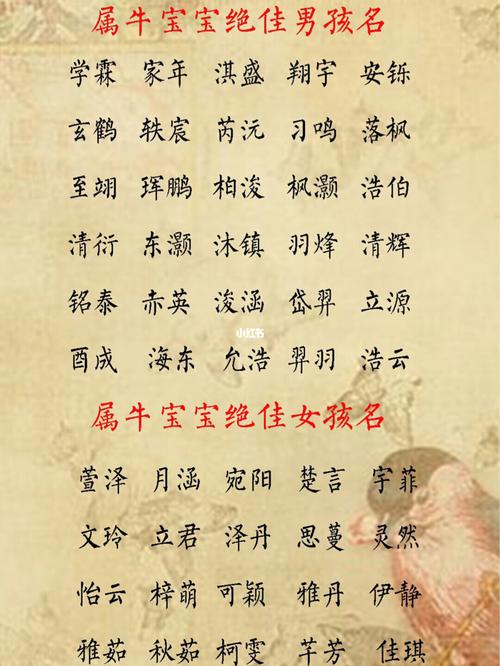 属牛宝宝绝佳男孩名
学霖 家年 淇盛 翔宇 安铄
玄鹤 轶宸 芮沅 习鸣 落枫
至翊 珲鹏 柏浚 枫灏 浩伯
清衍 东灏 沐镇 羽烽 清辉
铭泰 赤英 浚涵 岱羿 立源
小红书
酉成 海东 允浩 羿羽 浩云
属牛宝宝绝佳女孩名
萱泽 月涵 宛阳 楚言 宇菲
文玲 立君 泽丹 思蔓 灵然
怡云 梓萌 可颖 雅丹 伊静
雅茹 秋茹 柯雯 芊芳 佳琪